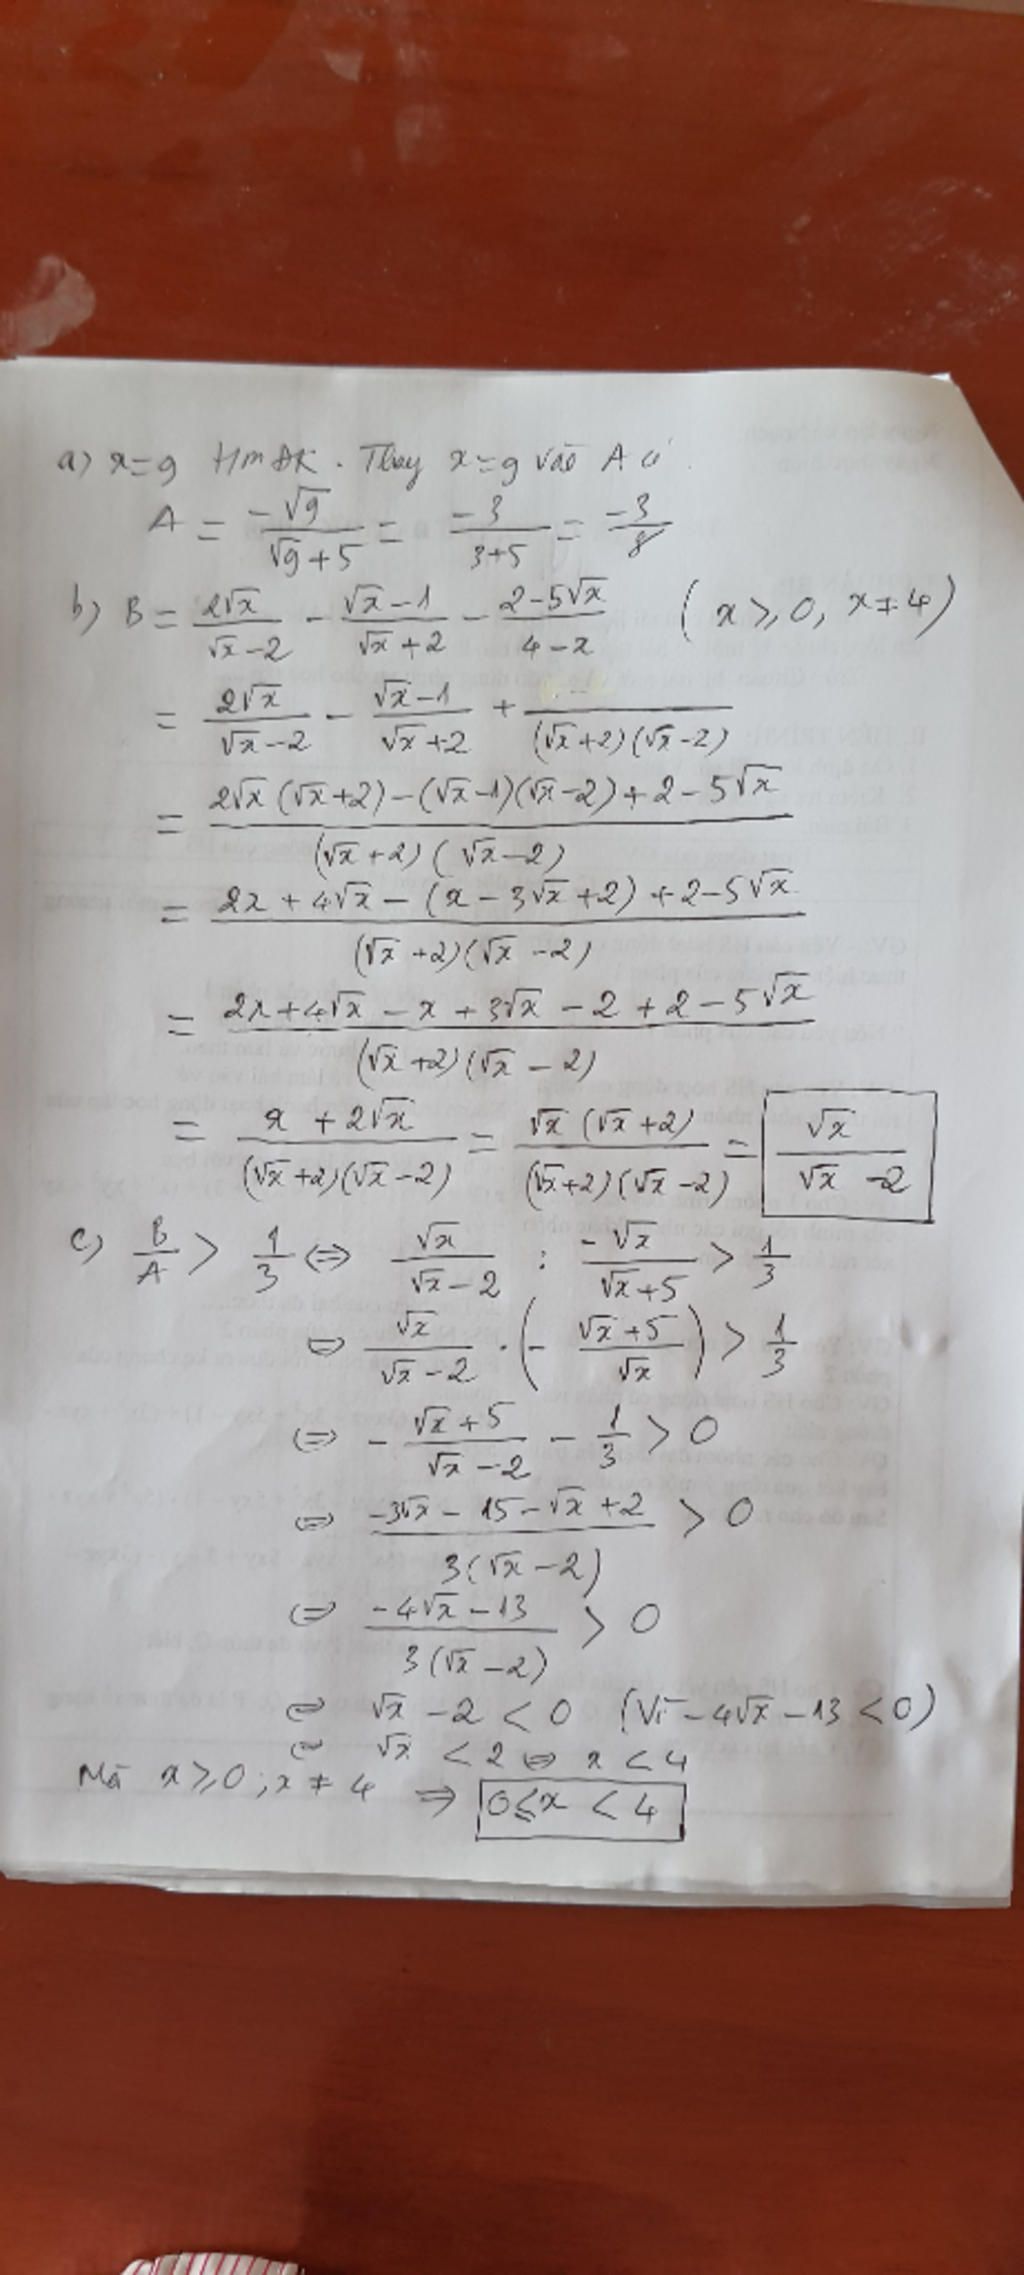 a) x=9 tmđk. Thay x=9 vào A có.
A = -√9/(√9+5) = -3/(3+5) = -3/8
b) B = 2√x/(√x-2) - (√x-1)/(√x+2) - (2-5√x)/(4-x) (x≥0, x≠4)
= 2√x/(√x-2) - (√x-1)/(√x+2) + /((√x+2)(√x-2))
= (2√x(√x+2)-(√x-1)(√x-2)+2-5√x)/((√x+2)(√x-2))
= (2x+4√x-(x-3√x+2)+2-5√x)/((√x+2)(√x-2))
= (2x+4√x-x+3√x-2+2-5√x)/((√x+2)(√x-2))
= (x+2√x)/((√x+2)(√x-2)) = √x(√x+2)/((√x+2)(√x-2)) = √x/(√x-2)
c) B/A > 1/3 ⇔ √x/(√x-2) : -√x/(√x+5) > 1/3
⇔ √x/(√x-2) · (- (√x+5)/√x) > 1/3
⇔ - (√x+5)/(√x-2) - 1/3 > 0
⇔ (-3√x-15-√x+2)/(3(√x-2)) > 0
⇔ (-4√x-13)/(3(√x-2)) > 0
⇔ √x-2 < 0 (Vì -4√x-13<0)
⇔ √x < 2 ⇔ x < 4
Mà x≥0; x≠4 ⇒ 0≤x<4